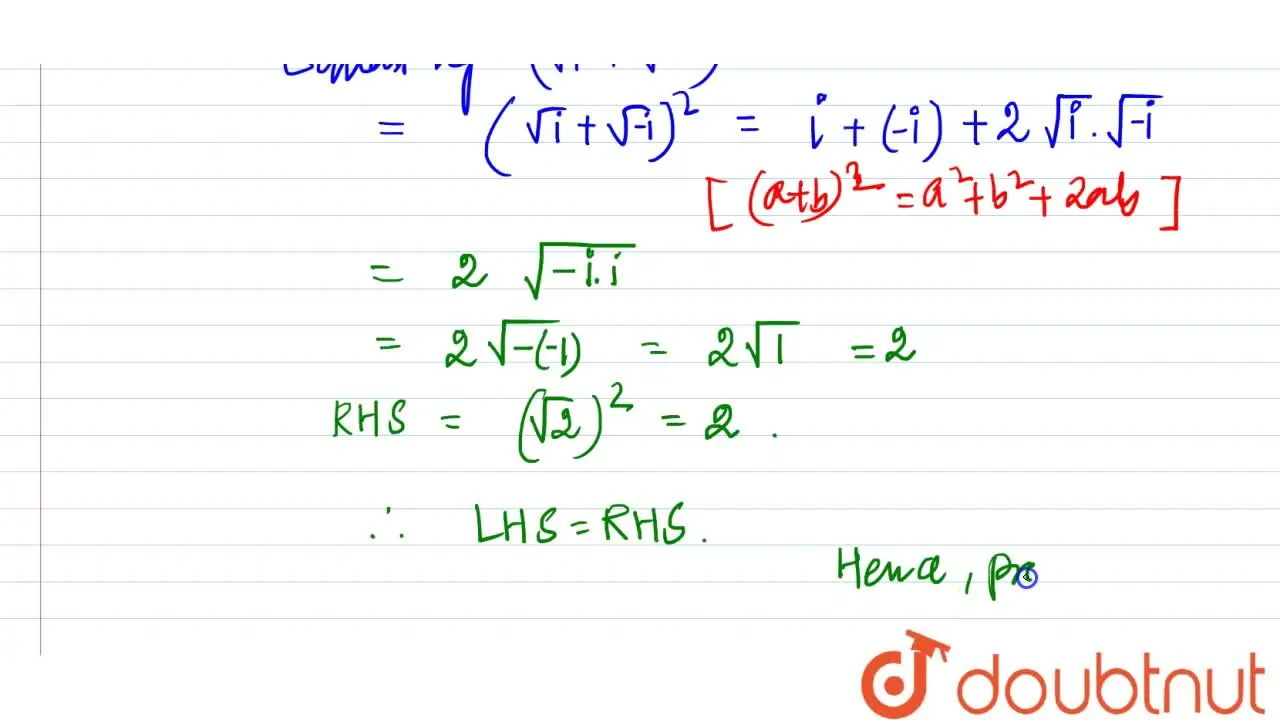 = (√i + √-i)² = i + (-i) + 2 √i . √-i
[ (a+b)² = a² + b² + 2ab ]
= 2 √-i.i
= 2 √-(-1) = 2 √1 = 2
RHS = (√2)² = 2 .
∴ LHS = RHS .
Hence, pr
doubtnut